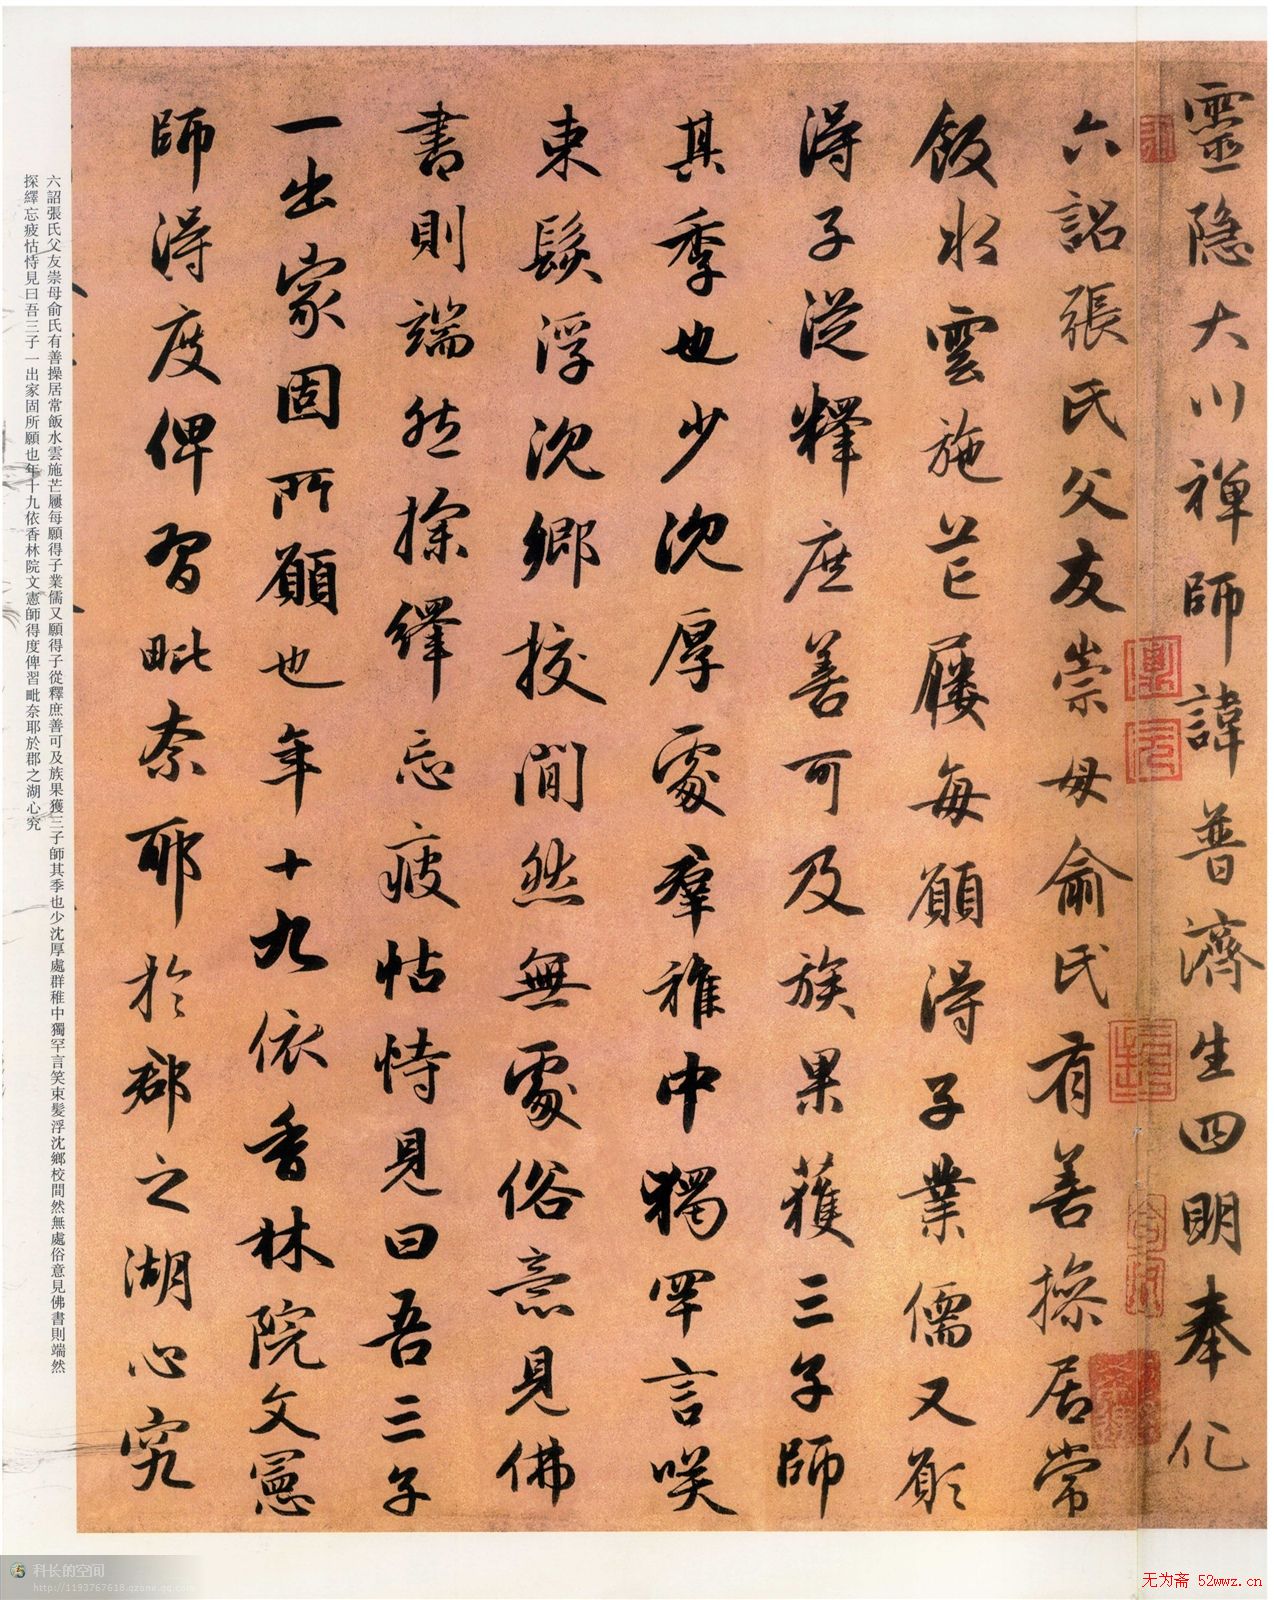 靈隐大川禅師諱普濟生四明奉化
六詔張氏父友崇母俞氏有善操居常
飯水雲施芒屨每願得子業儒又願
得子從釋庶善可及族果獲三子師
其季也少沈厚處羣稚中獨罕言咲
束髮浮沈鄉校間然無處俗意見佛
書則端然探繹忘疲怙恃見曰吾三子
一出家固所願也年十九依香林院文憲
師得度俾習毗奈耶於郡之湖心究
六詔張氏父友崇母俞氏有善操居常飯水雲施芒屨每願得子業儒又願得子從釋庶善可及族果獲三子師其季也少沈厚處群稚中獨罕言笑束髮浮沈鄉校間然無處俗意見佛書則端然
探繹忘疲怙恃見曰吾三子一出家固所願也年十九依香林院文憲師得度俾習毗奈耶於郡之湖心究
科长的空间
http://1193767618.qzone.qq.com
无为斋 52wwz.cn